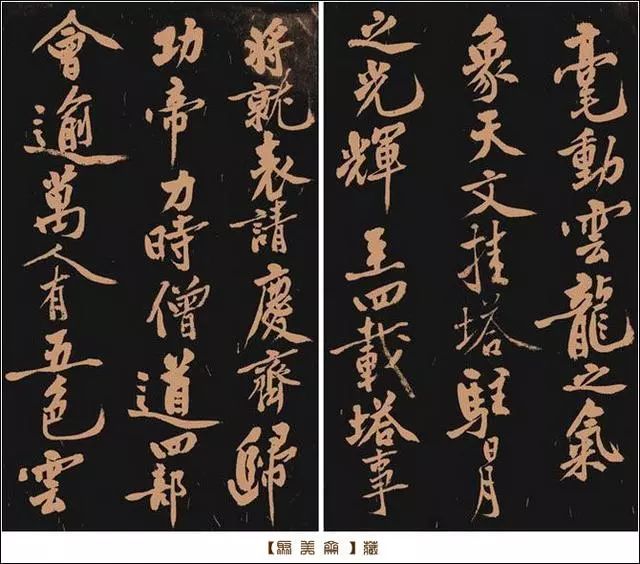 毫動雲龍之氣
象天文挂塔駐日月
之光輝至四載塔事
將就表請慶齋歸
功帝力時僧道四部
會逾萬人有五色雲